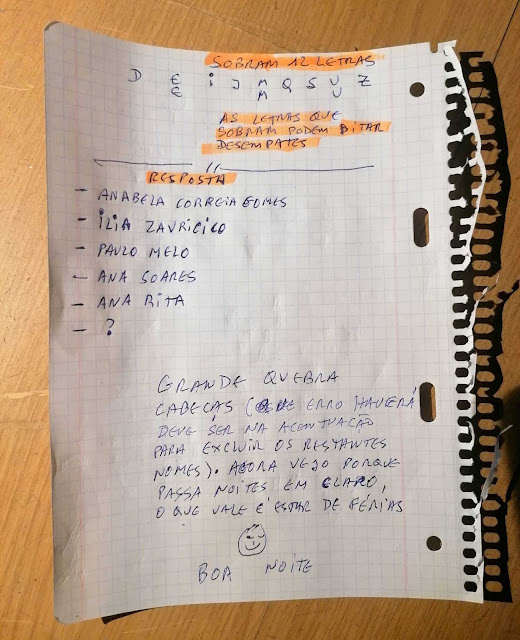 SOBRAM 12 LETRAS
D E i J M Q S U Z
E M U
AS LETRAS QUE
SOBRAM PODEM DITAR
DESEMPATES
RESPOSTA
- ANABELA CORREIA GOMES
- iLiA ZAVRICICO
- PAULO MELO
- ANA SOARES
- ANA RiTA
- ?
GRANDE QUEBRA
CABEÇAS ( ERRO HAVERÁ
DEVE SER NA ACENTUAÇÃO
PARA EXCLUIR OS RESTANTES
NOMES). AGORA VEJO PORQUE
PASSA NOITES EM CLARO,
O QUE VALE É ESTAR DE FÉRIAS
BOA NOITE